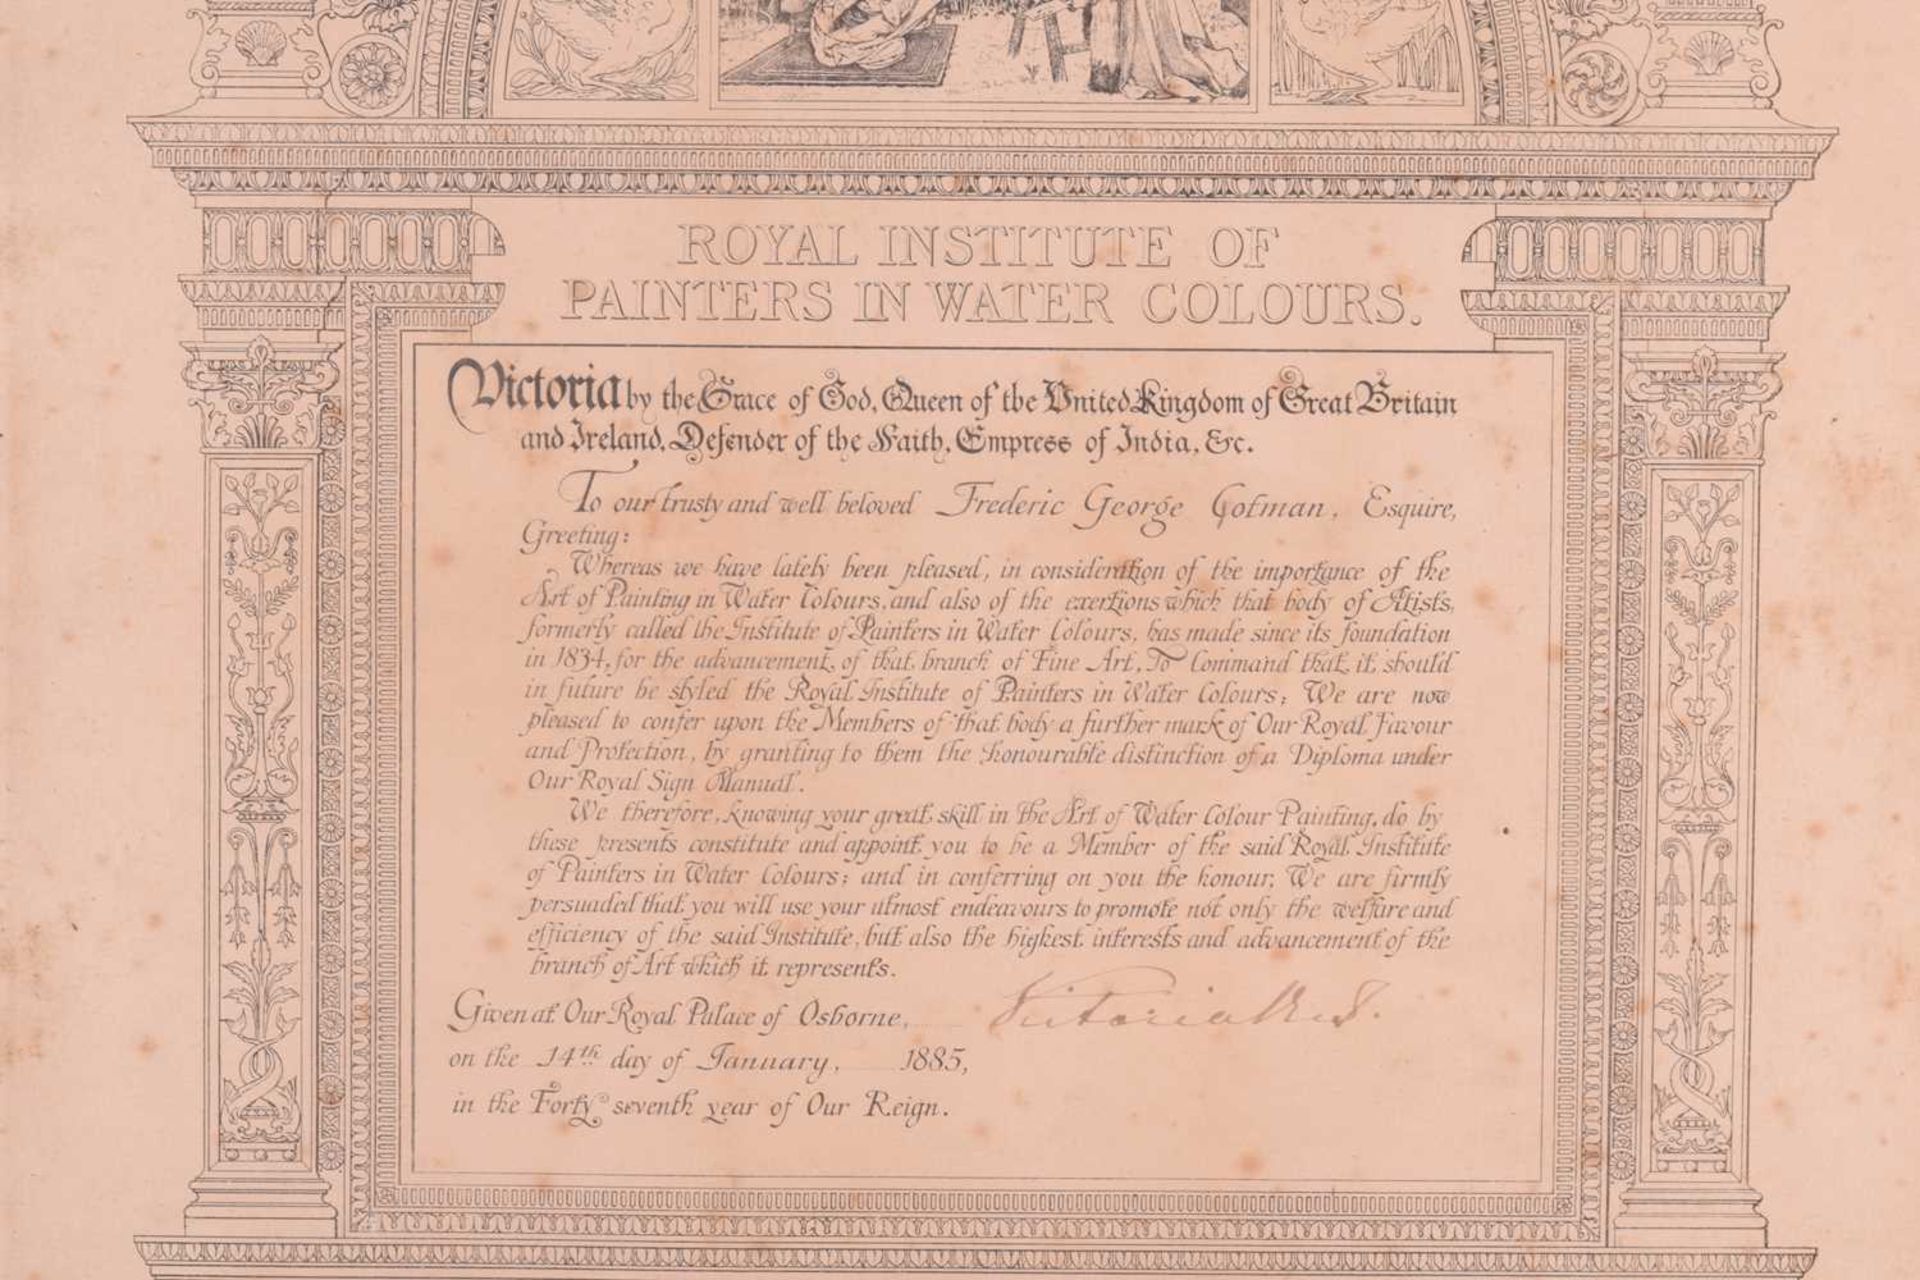 ROYAL INSTITUTE OF
PAINTERS IN WATER COLOURS.
Victoria by the Grace of God, Queen of the United Kingdom of Great Britain
and Ireland, Defender of the Faith, Empress of India, &c.
To our trusty and well beloved Frederic George Cotman, Esquire,
Greeting:
Whereas we have lately been pleased, in consideration of the importance of the
Art of Painting in Water Colours, and also of the exertions which that body of Artists,
formerly called the Institute of Painters in Water Colours, has made since its foundation
in 1834, for the advancement of that branch of Fine Art, To Command that it should
in future be styled the Royal Institute of Painters in Water Colours; We are now
pleased to confer upon the Members of that body a further mark of Our Royal Favour
and Protection, by granting to them the honourable distinction of a Diploma under
Our Royal Sign Manual.
We therefore, knowing your great skill in the Art of Water Colour Painting, do by
these presents constitute and appoint you to be a Member of the said Royal Institute
of Painters in Water Colours; and in conferring on you the honour, We are firmly
persuaded that you will use your utmost endeavours to promote not only the welfare and
efficiency of the said Institute, but also the highest interests and advancement of the
branch of Art which it represents.
Given at Our Royal Palace of Osborne, Victoria R & I.
on the 14th day of January, 1885,
in the Forty seventh year of Our Reign.